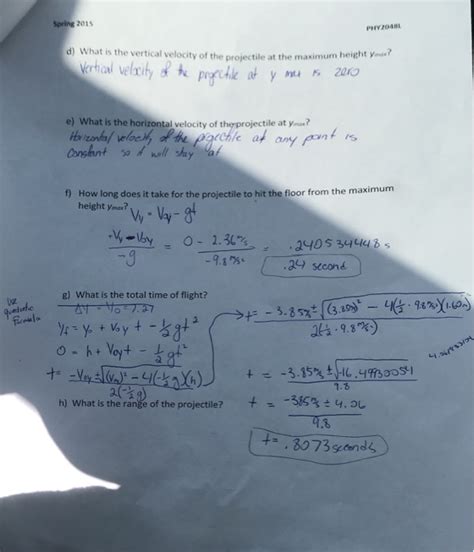 Spring 2015
PHY2048L
d) What is the vertical velocity of the projectile at the maximum height ymax?
Vertical velocity of the projectile at y max is zero
e) What is the horizontal velocity of the projectile at ymax?
Horizontal velocity of the projectile at any point is
constant so it will stay at
f) How long does it take for the projectile to hit the floor from the maximum
height ymax?
Vy = Voy - gt
-Vy - Voy / -g = 0 - 2.36 m/s / -9.8 m/s² = .240534448 s
.24 second
g) What is the total time of flight?
Use quadratic Formula
yf = yo + Voy t + -½gt²
0 = h + Voyt - ½gt²
t = -Voy ± √(Voy)² - 4(-½g)(h) / 2(-½g)
t = -3.85 m/s ± √(3.85)² - 4(½ · 9.8 m/s²)(1.60m) / 2(½ · 9.8 m/s²)
t = -3.85 m/s ± √-16.49930054 / 9.8
h) What is the range of the projectile?
t = -3.85 m/s ± 4.06 / 9.8
t = .8073 seconds